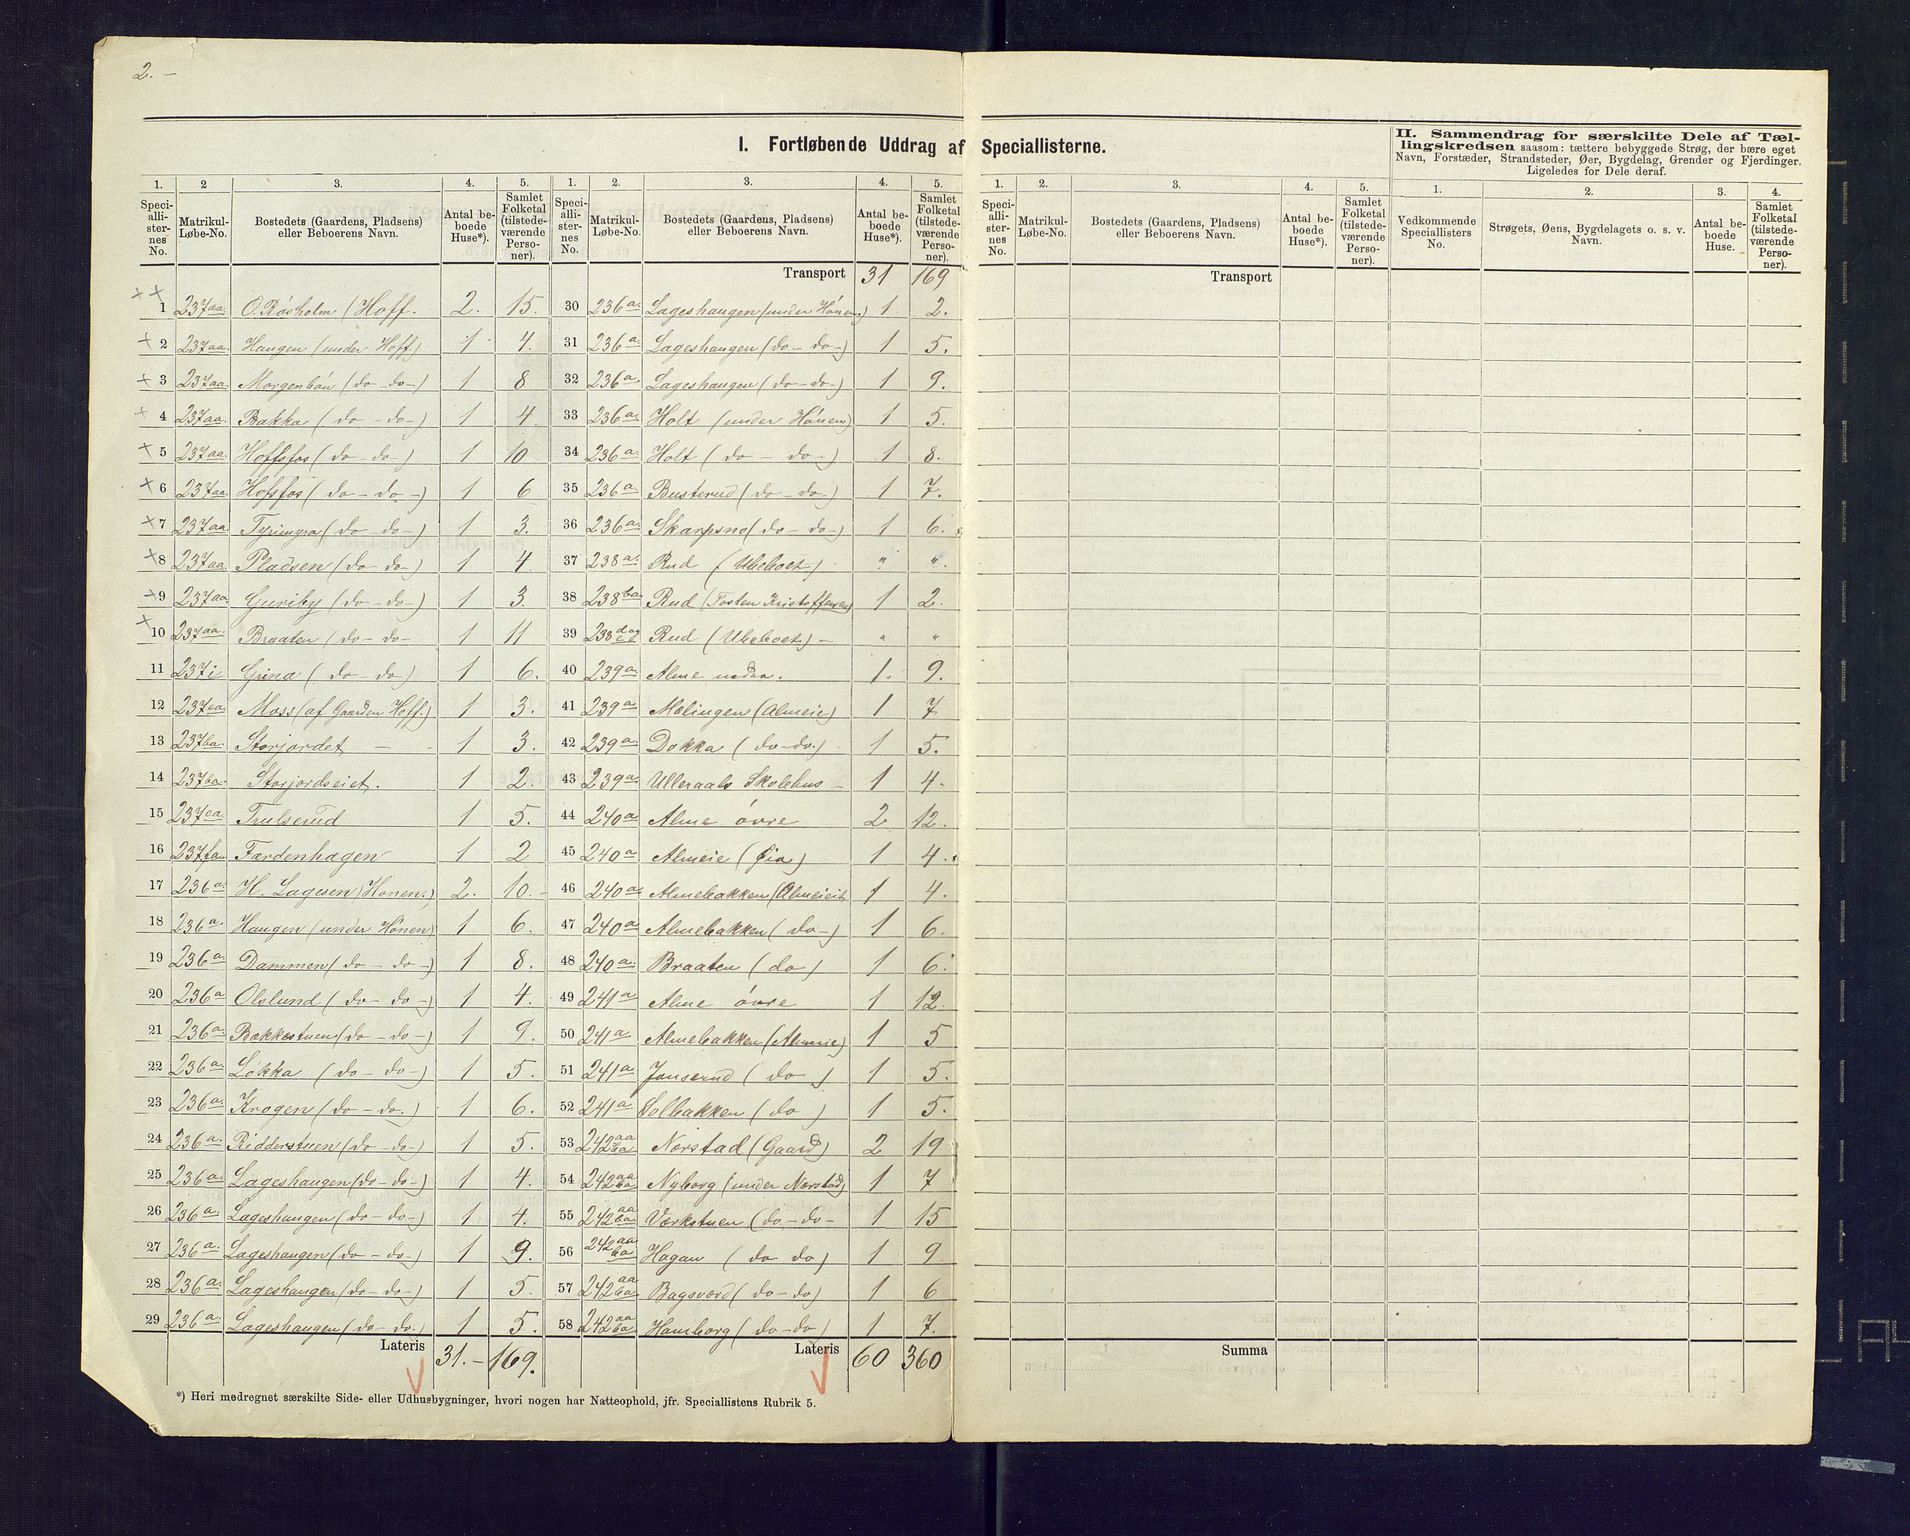 2. –
I. Fortløbende Uddrag af Speciallisterne.
II. Sammendrag for særskilte Dele af Tæl-
lingskredsen saasom: tættere bebyggede Strøg, der bære eget
Navn, Forstæder, Strandsteder, Øer, Bygdelag, Grender og Fjerdinger.
Ligeledes for Dele deraf.
1. 2 3. 4. 5. 1. 2. 3. 4. 5. 1. 2. 3. 4. 5. 1. 2. 3. 4.
Speciallisternes No. Matrikul-Løbe-No. Bostedets (Gaardens, Pladsens) eller Beboerens Navn. Antal beboede Huse*). Samlet Folketal (tilstedeværende Personer).
Speciallisternes No. Matrikul-Løbe-No. Bostedets (Gaardens, Pladsens) eller Beboerens Navn. Antal beboede Huse*). Samlet Folketal (tilstedeværende Personer).
Speciallisternes No. Matrikul-Løbe-No. Bostedets (Gaardens, Pladsens) eller Beboerens Navn. Antal beboede Huse*). Samlet Folketal (tilstedeværende Personer).
Vedkommende Speciallisters No. Strøgets, Øens, Bygdelagets o. s. v. Navn. Antal beboede Huse. Samlet Folketal (tilstedeværende Personer).
1 237aa. O. Røsholm (Hoff. 2. 15.
2 237aa. Haugen (under Hoff) 1 4.
3 237aa. Morgenbón (do-do-) 1 8
4 237aa. Bakka (do-do-) 1 4
5 237aa Hoffsfos (do-do-) 1 10
6 237aa. Hofsfos (do-do-) 1 6
7 237aa. (do-do-) 1 3.
8 237aa. Pladsen (do-do-) 1 4
9 237aa Guriby (do-do-) 1 3.
10 237aa. Braaten (do-do- 1 11
11 237i Grina (do-do) 1 6.
12 237 Moss (af Gaarden Hoff.) 1 3.
13 237ba. Storjordet – 1 3.
14 237ba. Storjordseiet. 1 2.
15 237ea. Trulserud 1 5.
16 237fa Færdenhagen 1 2
17 236a. H. Lagesen (Hónen.) 2. 10.
18 236a. Haugen (under Hónen) 1 6.
19 236a. Dammen (do-do-) 1 8.
20 236a Olslund (do-do-) 1 4.
21 236a. Bakkestuen (do-do-) 1 9.
22 236a. Lókka (do-do-) 1 5.
23 236a. Krogen (do-do.) 1 6.
24 236a. Ridderstuen (do-do-) 1 5.
25 236a. Lageshaugen (do-do-) 1 4.
26 236a. Lageshaugen (do-do-) 1 4.
27 236a. Lageshaugen (do-do-) 1 9.
28 236a. Lageshaugen (do-do-) 1 5.
29 236a. Lageshaugen (do-do.) 1 5.
Lateris 31.– 169.
Transport 31 169
30 236a. Lageshaugen (under Hónen.) 1 2.
31 236a Lageshaugen (do-do-) 1 5.
32 236a. Lageshaugen (do-do-) 1 9.
33 236a. Holt (under Hónen) 1 5.
34 236a. Holt (do-do-) 1 8.
35 236a. Busterud (do-do-) 1 7.
36 236a. Skarpsno (do-do-) 1 6.
37 238a. Rud (Ubeboet) " ".
38 238ba. Rud (Tosten Kristoffersen) 1 2.
39 238 Rud (Ubeboet) – " "
40 239a Alme nedra. 1. 9.
41 239a Mælingen (Almeie) 1 7
42 239a. Dokka (do-do.) 1 5.
43 239a Ulleraals Skolehus – 1 4.
44 240a Alme óvre 2 12.
45 240a Almeie (Øia) 1 4.
46 240a Almebakken (Almeiet 1 4.
47 240a. Almebakken (do-) 1 6.
48 240a. Braaten (do) 1 6.
49 241a Alme óvre 1 12.
50 241a. Almebakken (Almeie) 1 5
51 241a Jonserud (do) 1 5.
52 241a Solbakken (do) 1 5.
53 242aa ba Nørstad (Gaard) 2 19
54 242aa ba. Nyborg (under Nørstad) 1 7
55 242aa ba. Værkstuen (do-do- 1 15
56 242aa ba Hagan (do do) 1 9
57 242aa ba. Bagsværd (do-do) 1 6
58 242aa ba. Hamborg (do-do) 1 7.
Lateris 60 360
Transport
Summa
*) Heri medregnet særskilte Side- eller Udhusbygninger, hvori nogen har Natteophold, jfr. Speciallistens Rubrik 5.